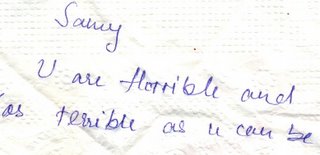 Samy
U are Horrible and
as terrible as u can be